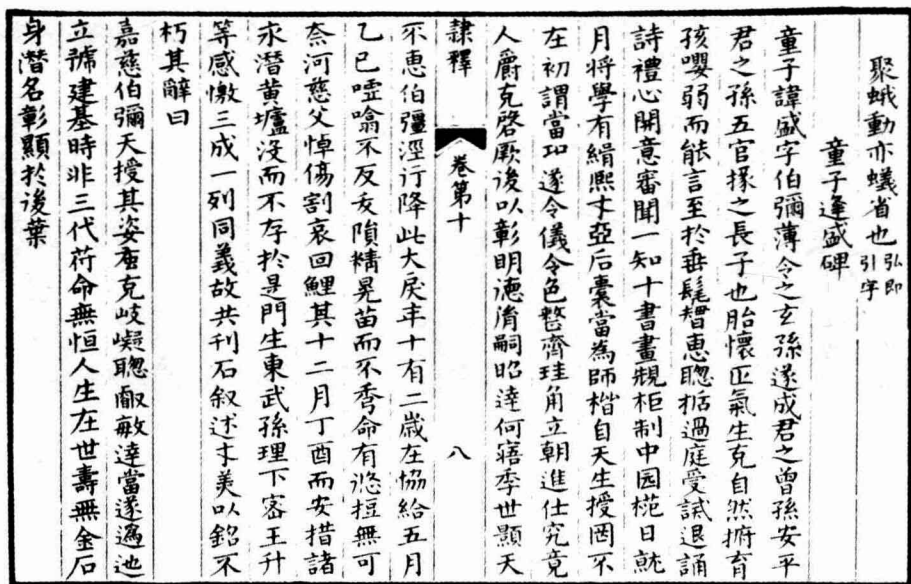 聚蛾動亦蟻省也弘即引字
童子逢盛碑
童子諱盛字伯彌薄令之玄孫遂成君之曾孫安平
君之孫五官掾之長子也胎懷正氣生克自然㨂育
孩嬰弱而能言至於垂髦智惠聰哲過庭受誡退誦
詩禮心開意審聞一知十書畫規柜制中园椛日就
月將學有緝熙才亞后橐當為師楷自天生授罔不
在初謂當㘦遂令儀令色整齊珪角立朝進仕究竟
人爵克啓厥後以彰明德㣲嗣昭達何寤季世顥天
隸釋 卷第十 八
不惠伯彊淫行降此大戾年十有二歲在協給五月
乙巳噓噏不反夭隕精晃苗而不秀命有悠短無可
奈何慈父悼傷割哀回鯉其十二月丁酉而安措諸
永潛黃壚沒而不存於是門生東武孫理下密王升
等感憿三成一列同義故共刊石叙述才美以銘不
朽其辭曰
嘉慈伯彌天授其姿蚤克岐嶷聰叡敏達當遂邁迆
立號建基時非三代符命無恒人生在世壽無金石
身潛名彰顯於後葉